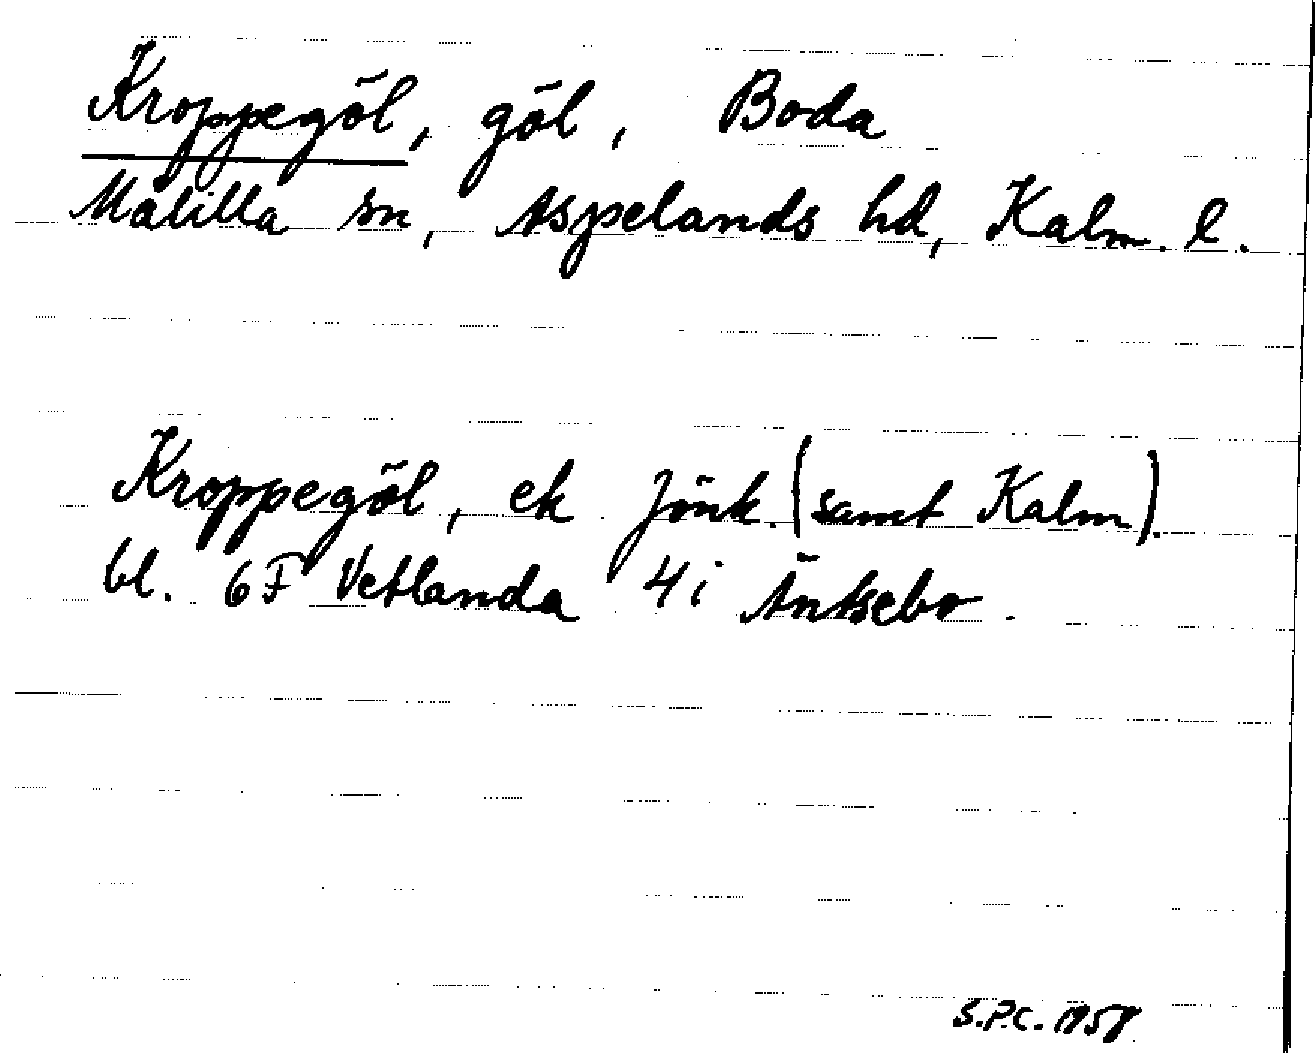 Kroppegöl, göl, Boda
Målilla sn, Aspelands hd, Kalm. l.
Kroppegöl, ek Jönk. (samt Kalm).
bl. 6F Vetlanda 4i Äntsebo.
S.P.C. 1958